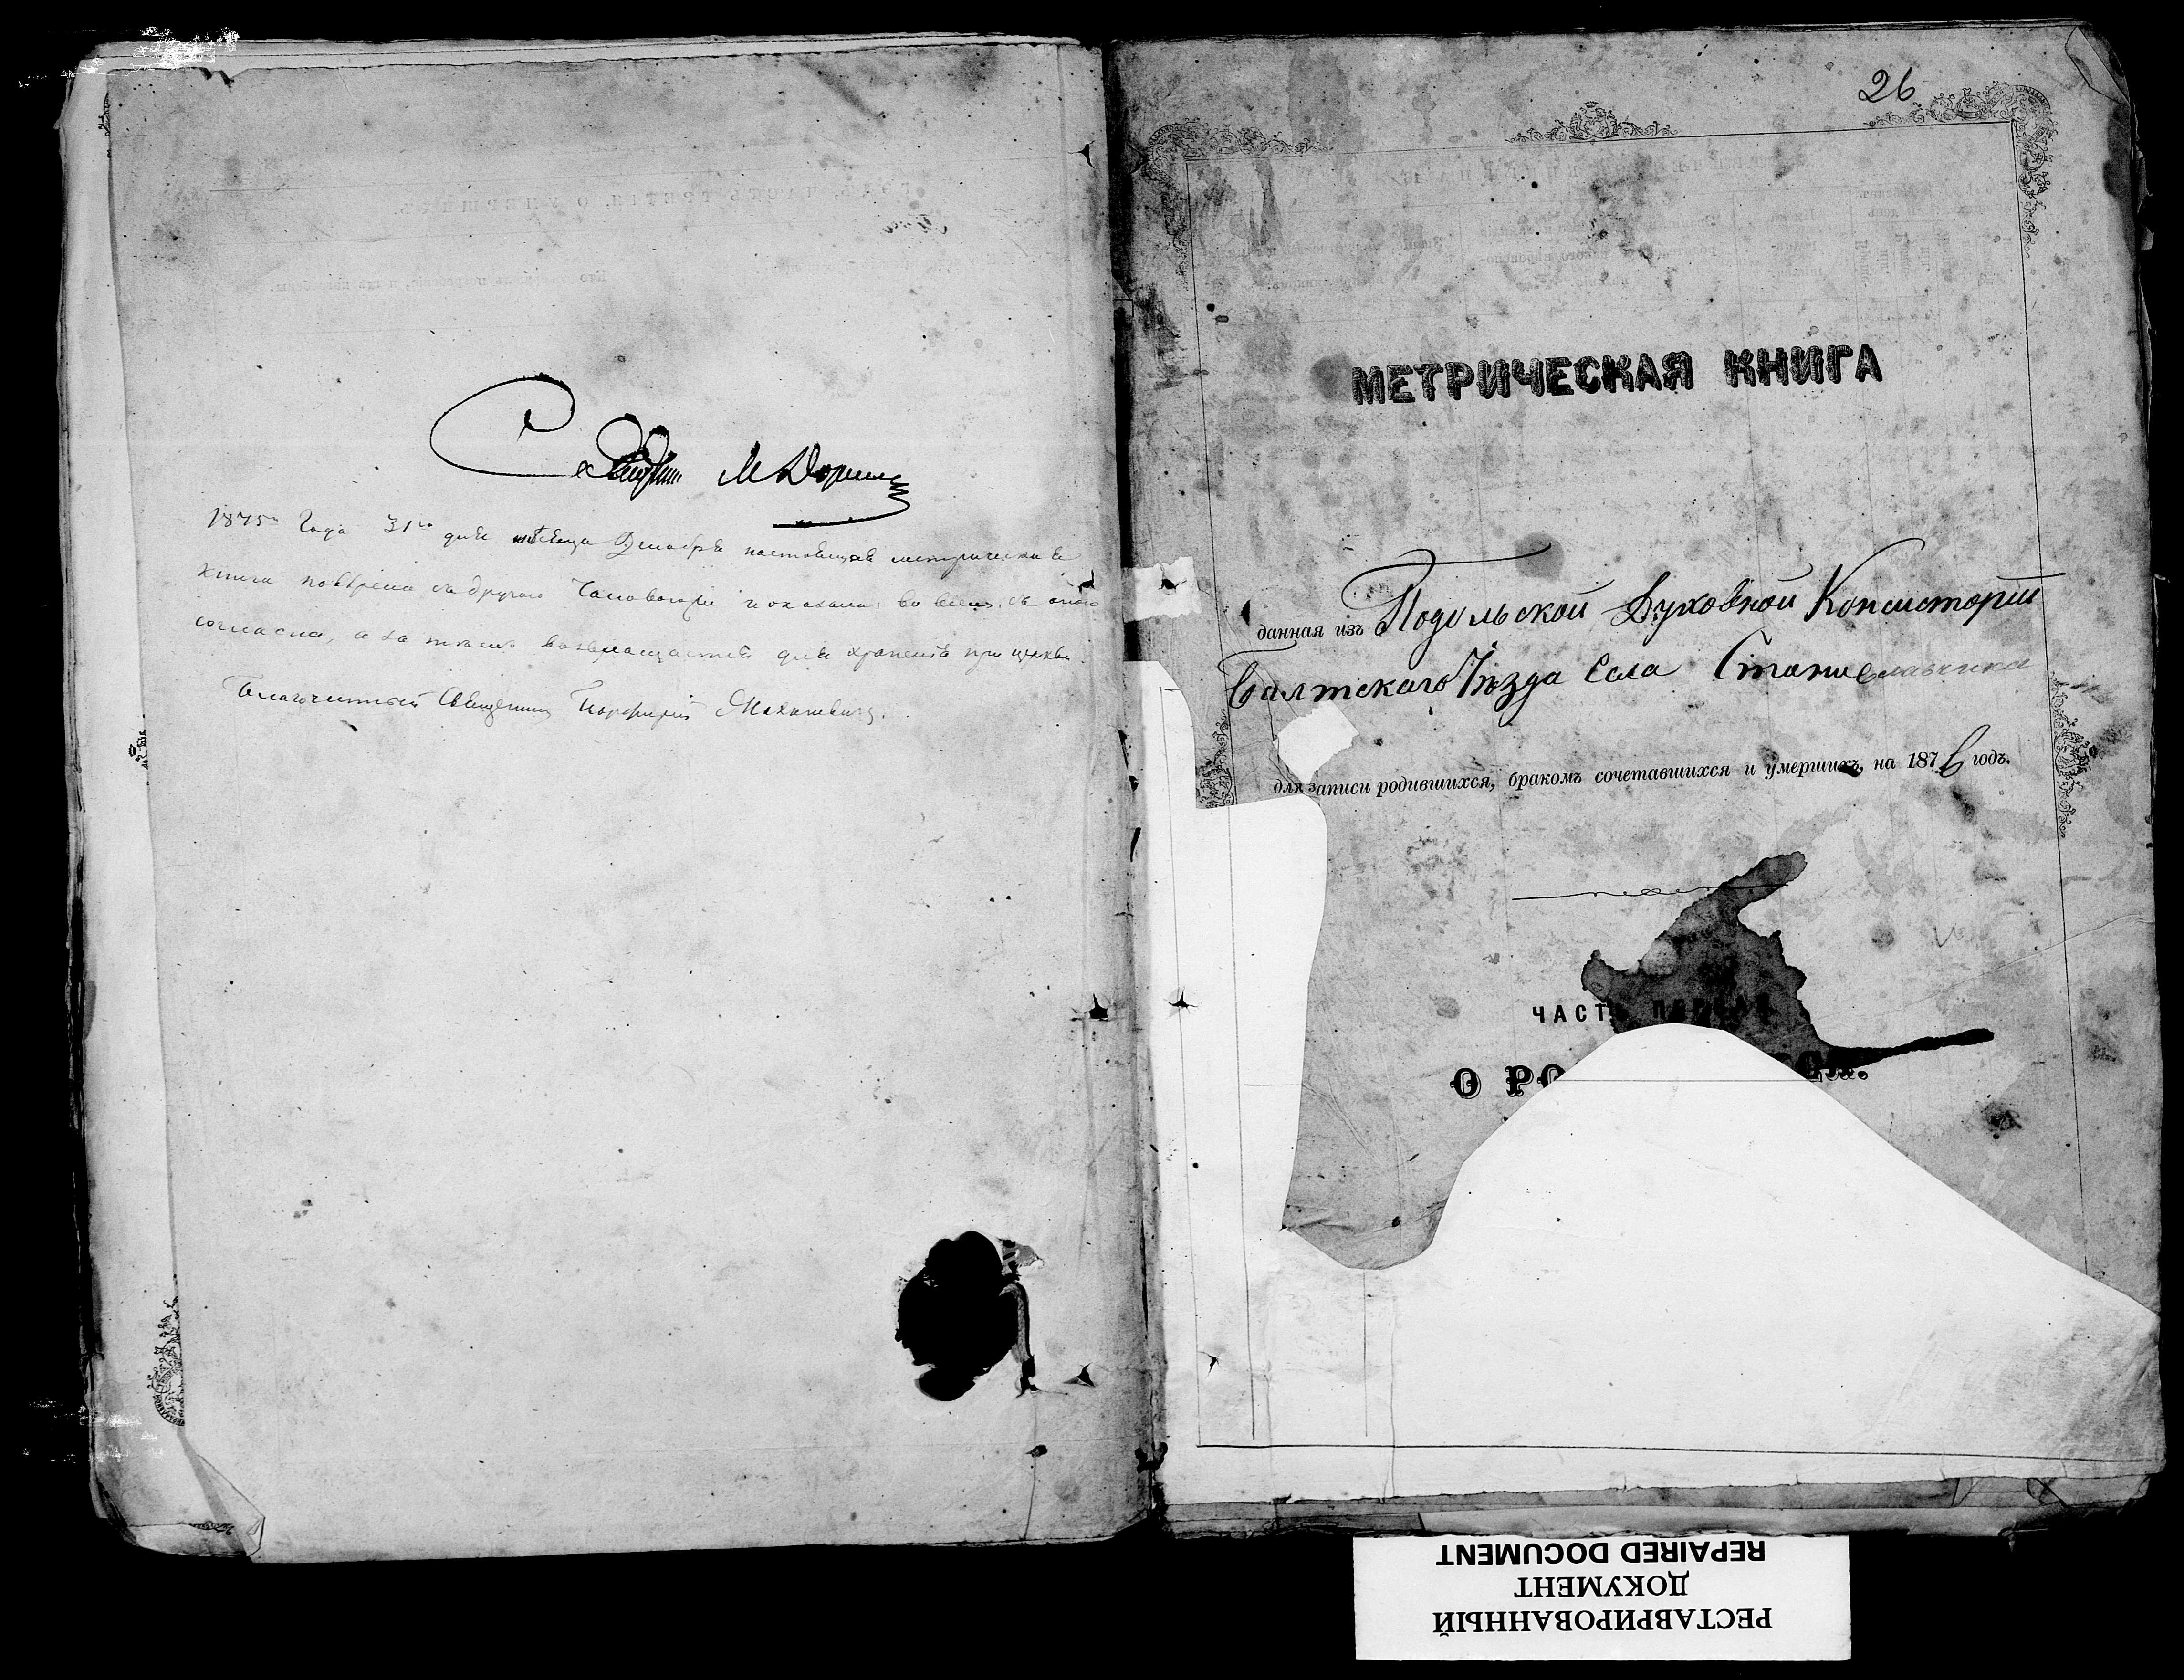 Секретарь
1875го Года 31го дня месяца Декабря настоящая метрическая
книга повѣрена съ другою таковою и оказалась во всемъ съ оною
согласна, а за тѣмъ возвращается для храненія при церкви.
Благочинный Священникъ Порфирій
26
МЕТРИЧЕСКАЯ КНИГА
данная изъ Подольской Духовной Консисторіи
Балтскаго Уѣзда Села Станиславчика
для записи родившихся, бракомъ сочетавшихся и умершихъ, на 1876 годъ.
ЧАСТЬ ПЕРВАЯ
О РО СЯ.
REPAIRED DOCUMENT
ДОКУМЕНТ
РЕСТАВРИРОВАННЫЙ